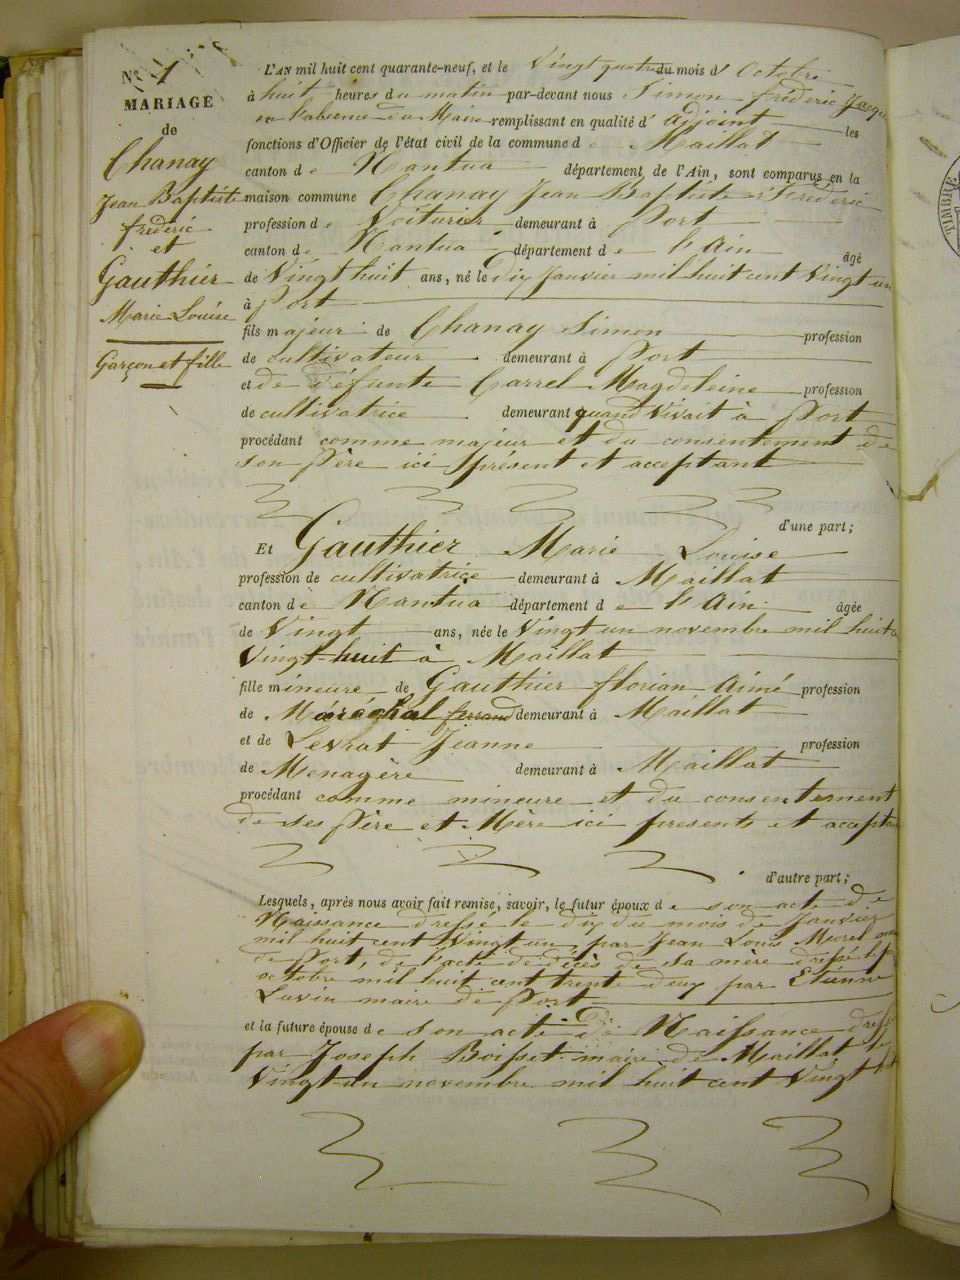 N° 1
MARIAGE
de
Chanay
Jean Baptiste
fréderic
et
Gauthier
Marie Louise
Garçon et fille
L'AN mil huit cent quarante-neuf, et le Vingt quatre du mois d'Octobre
à huit heures du matin par-devant nous Simon fréderic Jacqu
en l'absence du Maire remplissant en qualité d'adjoint les
fonctions d'Officier de l'état civil de la commune de Maillat
canton de Nantua département de l'Ain, sont comparus en la
maison commune Chanay Jean Baptiste fréderic
profession de Voiturier demeurant à Port
canton de Nantua département de l'Ain âgé
de Vingt huit ans, né le Dix Janvier mil huit cent Vingt un
à Port
fils majeur de Chanay Simon profession
de cultivateur demeurant à Port
et de Défunte Carrel Magdeleine profession
de cultivatrice demeurant quand vivait à Port
procédant comme majeur et du consentement de
son Père ici présent et acceptant
d'une part;
Et Gauthier Marie Louise
profession de cultivatrice demeurant à Maillat
canton de Nantua département de l'Ain âgée
de Vingt ans, née le Vingt un novembre mil huit c
Vingt-huit à Maillat
fille mineure de Gauthier florian Aimé profession
de Maréchal ferrand demeurant à Maillat
et de Levrat Jeanne profession
de Menagère demeurant à Maillat
procédant comme mineure et du consentement
de ses Père et Mère ici presents et accepta
d'autre part;
Lesquels, après nous avoir fait remise, savoir, le futur époux de son acte de
Naissance dressé le dix du mois de Janvier
mil huit cent Vingt un, par Jean Louis Morel
de Port, de l'acte de décès de sa mère dressé le
octobre mil huit cent trente deux par Etienne
Luvin maire de Port
et la future épouse de son acte de Naissance dressé
par Joseph Boisset maire de Maillat le
Vingt-un novembre mil huit cent Vingt
TIMBRE